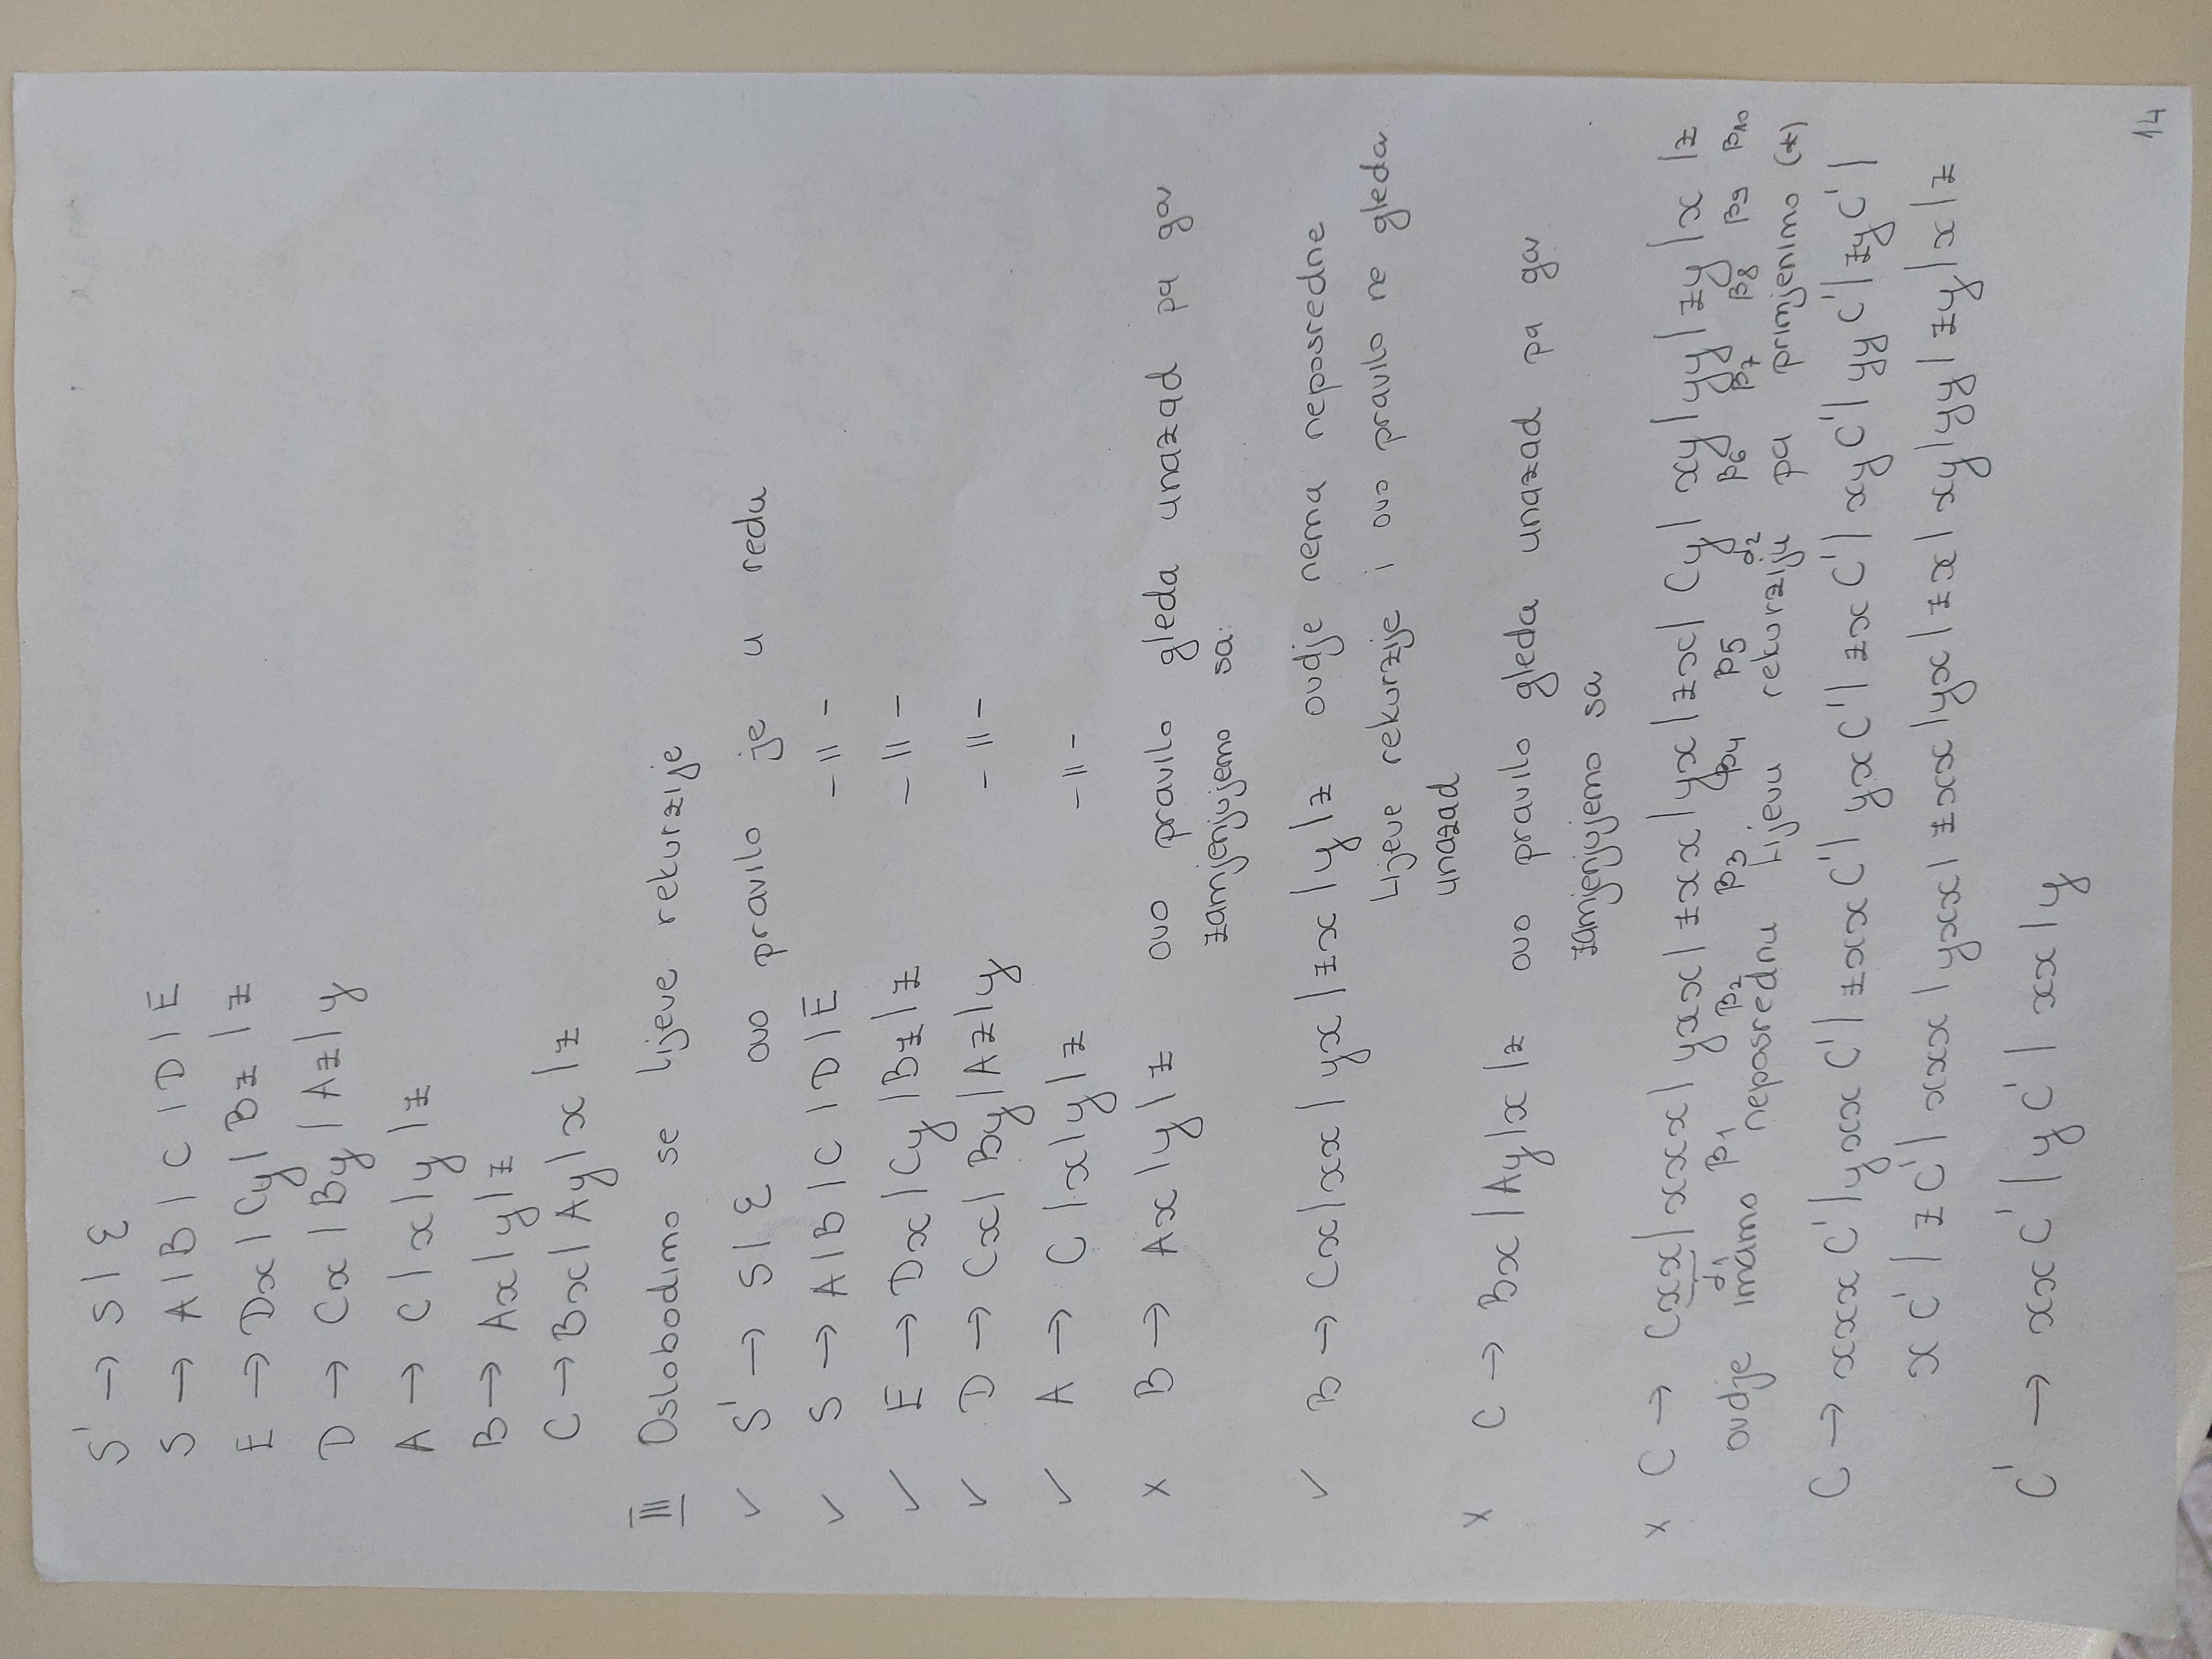 S' → S | ε
S → A | B | C | D | E
E → Dx | Cy | Bz | z
D → Cx | By | Az | y
A → C | x | y | z
B → Ax | y | z
C → Bx | Ay | x | z
III Oslobodimo se lijeve rekurzije
✓ S' → S | ε ovo pravilo je u redu
✓ S → A | B | C | D | E - || -
✓ E → Dx | Cy | Bz | z - || -
✓ D → Cx | By | Az | y - || -
✓ A → C | x | y | z - || -
x B → Ax | y | z ovo pravilo gleda unazad pa ga
zamjenjujemo sa:
✓ B → Cx | xx | yx | zx | y | z ovdje nema neposredne
Lijeve rekurzije i ovo pravilo ne gleda
unazad
x C → Bx | Ay | x | z ovo pravilo gleda unazad pa ga
zamjenjujemo sa
x C → Cxx | xxx | yxx | zxx | yx | zx | Cy | xy | yy | zy | x | z
α1 β1 β2 β3 β4 β5 α2 β6 β7 β8 β9 β10
ovdje imamo neposrednu Lijevu rekurziju pa primjenimo (*)
C → xxx C' | yxx C' | zxx C' | yx C' | zx C' | xy C' | yy C' | zy C' |
x C' | z C' | xxx | yxx | zxx | yx | zx | xy | yy | zy | x | z
C' → xx C' | y C' | xx | y
14